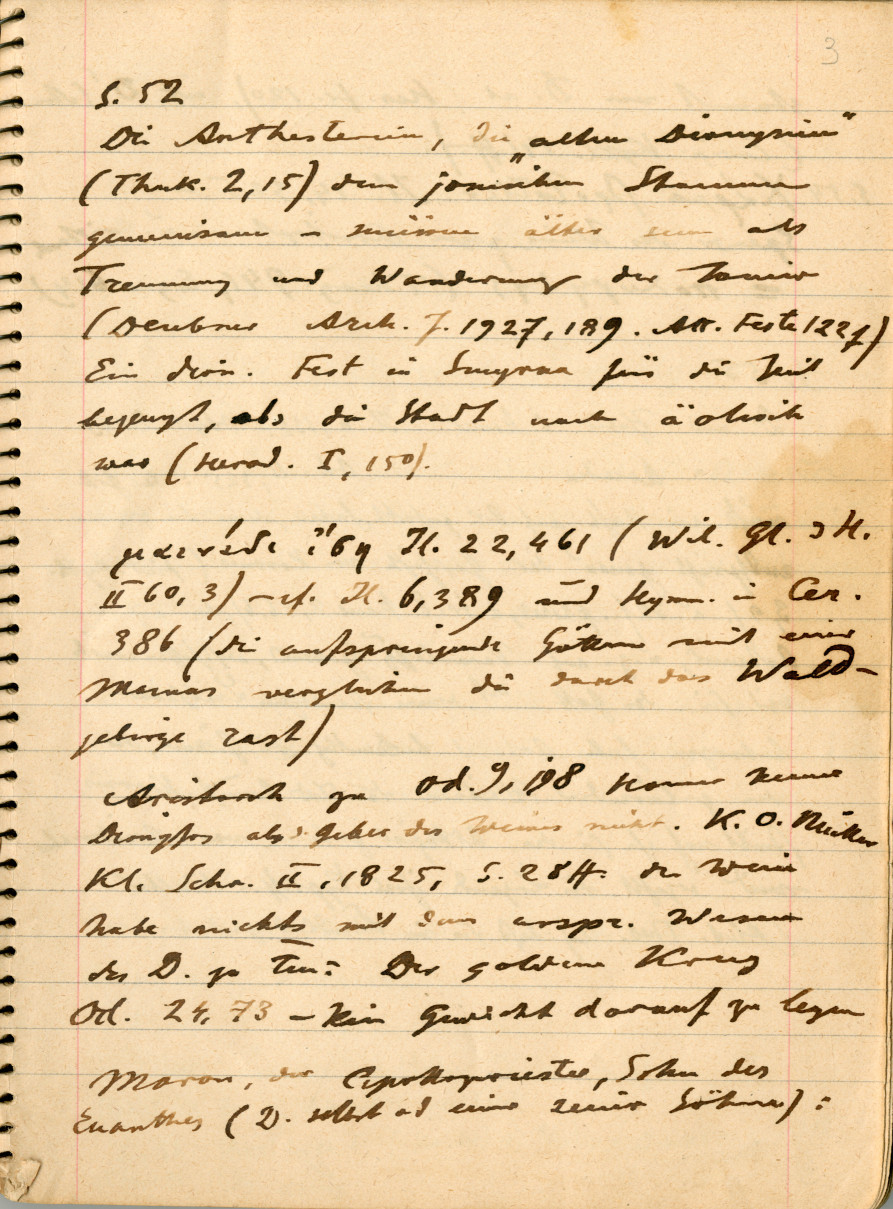 3
S. 52
Die Anthesterien, die „alten Dionysien“
(Thuk. 2,15) den jonischen Stämmen
gemeinsam – müssen älter sein als
Trennung und Wanderung der Jonier
(Deubner Arch. J. 1927, 189. Att. Feste 122f)
Ein dion. Fest in Smyrna für die Zeit
bezeugt, als die Stadt noch äolisch
war (Herod. I, 150).
μαινάδι ἴση Il. 22,461 (Wil. Gl. d H.
II 60,3) – cf. Il. 6,389 und Hymn. in Cer.
386 (die aufspringende Göttin mit einer
Mainas verglichen die durch das Wald-
gebirge rast)
Aristarch zu Od. 9,198 Homer kenne
Dionysos als Geber des Weines nicht. K. O. Müller
Kl. Schr. II, 1825, S. 28ff. der Wein
habe nichts mit dem urspr. Wesen
des D. zu tun: Der goldene Krug
Od. 24,73 – kein Gewicht darauf zu legen
Maron, der Apollopriester, Sohn des
Euanthes (D. selbst od einer seiner Söhne):